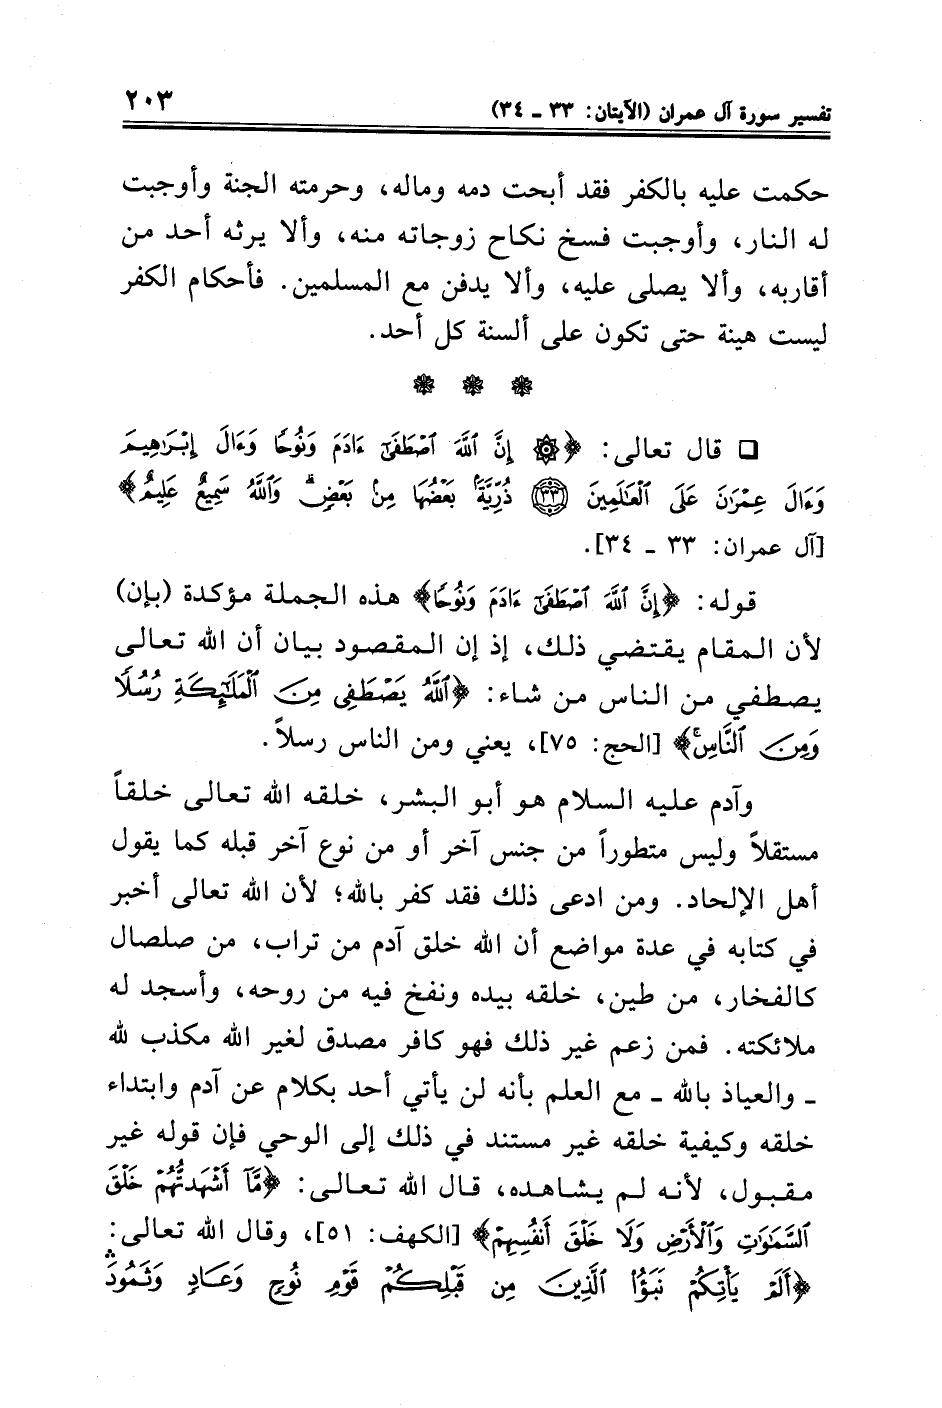 تفسير سورة آل عمران (الآيتان: ٣٣ ـ ٣٤) ٢٠٣
حكمت عليه بالكفر فقد أبحت دمه وماله، وحرمته الجنة وأوجبت
له النار، وأوجبت فسخ نكاح زوجاته منه، وألا يرثه أحد من
أقاربه، وألا يصلى عليه، وألا يدفن مع المسلمين. فأحكام الكفر
ليست هينة حتى تكون على ألسنة كل أحد.
❋ ❋ ❋
❏ قال تعالى: ﴿۞ إِنَّ ٱللَّهَ ٱصْطَفَىٰٓ ءَادَمَ وَنُوحًا وَءَالَ إِبْرَٰهِيمَ
وَءَالَ عِمْرَٰنَ عَلَى ٱلْعَٰلَمِينَ ٣٣ ذُرِّيَّةًۢ بَعْضُهَا مِنۢ بَعْضٍۗ وَٱللَّهُ سَمِيعٌ عَلِيمٌ﴾
[آل عمران: ٣٣ ـ ٣٤].
قوله: ﴿إِنَّ ٱللَّهَ ٱصْطَفَىٰٓ ءَادَمَ وَنُوحًا﴾ هذه الجملة مؤكدة (بإن)
لأن المقام يقتضي ذلك، إذ إن المقصود بيان أن الله تعالى
يصطفي من الناس من شاء: ﴿ٱللَّهُ يَصْطَفِى مِنَ ٱلْمَلَٰٓئِكَةِ رُسُلًا
وَمِنَ ٱلنَّاسِۚ﴾ [الحج: ٧٥]، يعني ومن الناس رسلاً.
وآدم عليه السلام هو أبو البشر، خلقه الله تعالى خلقاً
مستقلاً وليس متطوراً من جنس آخر أو من نوع آخر قبله كما يقول
أهل الإلحاد. ومن ادعى ذلك فقد كفر بالله؛ لأن الله تعالى أخبر
في كتابه في عدة مواضع أن الله خلق آدم من تراب، من صلصال
كالفخار، من طين، خلقه بيده ونفخ فيه من روحه، وأسجد له
ملائكته. فمن زعم غير ذلك فهو كافر مصدق لغير الله مكذب لله
ـ والعياذ بالله ـ مع العلم بأنه لن يأتي أحد بكلام عن آدم وابتداء
خلقه وكيفية خلقه غير مستند في ذلك إلى الوحي فإن قوله غير
مقبول، لأنه لم يشاهده، قال الله تعالى: ﴿مَّآ أَشْهَدتُّهُمْ خَلْقَ
ٱلسَّمَٰوَٰتِ وَٱلْأَرْضِ وَلَا خَلْقَ أَنفُسِهِمْ﴾ [الكهف: ٥١]، وقال الله تعالى:
﴿أَلَمْ يَأْتِكُمْ نَبَؤُا۟ ٱلَّذِينَ مِن قَبْلِكُمْ قَوْمِ نُوحٍ وَعَادٍ وَثَمُودَۛ